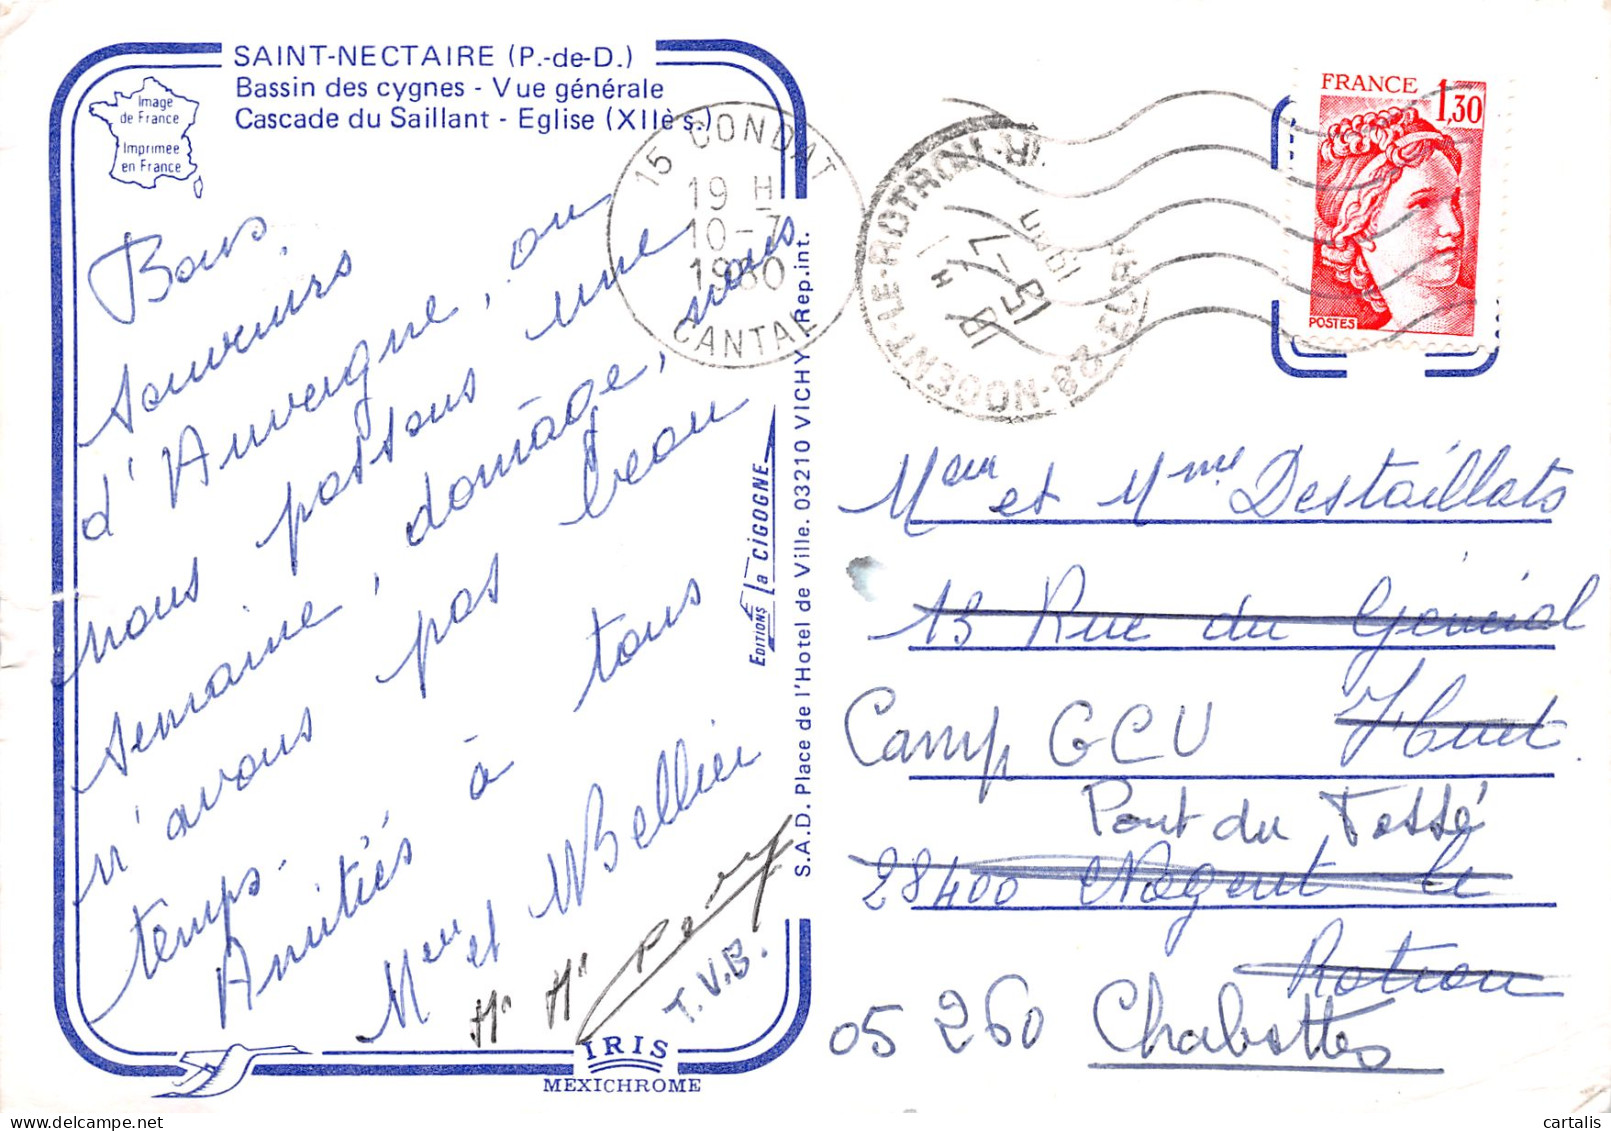 SAINT-NECTAIRE (P.-de-D.)
Bassin des cygnes - Vue générale
Cascade du Saillant - Eglise (XIIè s.)
Image
de France
Imprimée
en France
15 CONDAT
19 H
10-7
1980
CANTAL
28-NOGENT-LE-ROTROU
FRANCE
1,30
POSTES
Bons
souvenirs
d'Auvergne, ou
nous passons une
semaine, domage, nous
n'avons pas beau
temps-
Amitiés à tous
Meur et M Bellier
T.V.B.
EDITIONS La CIGOGNE
S.A.D. Place de l'Hotel de Ville. 03210 VICHY Rep.int.
IRIS
MEXICHROME
Meur et Mme Destaillats
13 Rue du Général
Huet
Camp GCU
Pont du Fossé
28400 Nogent le
Rotrou
05 260 Chabottes
cartalis